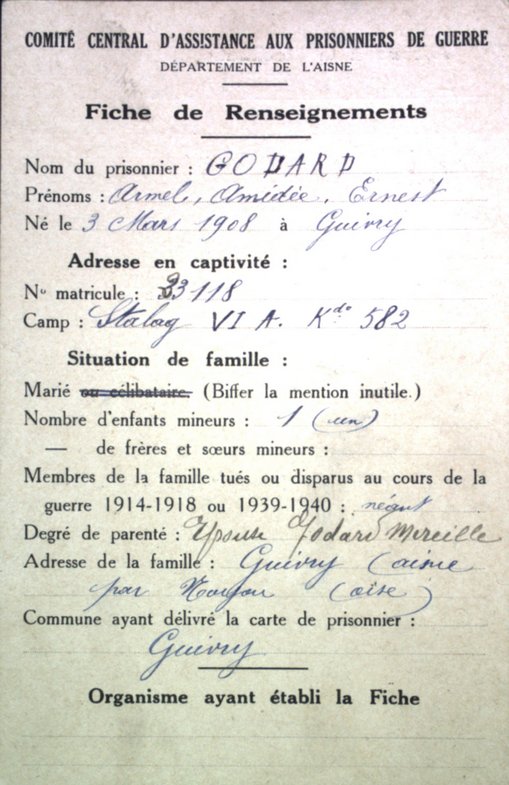 COMITÉ CENTRAL D'ASSISTANCE AUX PRISONNIERS DE GUERRE
DÉPARTEMENT DE L'AISNE
Fiche de Renseignements
Nom du prisonnier : GODARD
Prénoms : Armel, Amédée, Ernest
Né le 3 Mars 1908 à Guivry
Adresse en captivité :
No matricule : 33118
Camp : Stalag VI A. Kdo 582
Situation de famille :
Marié ou célibataire. (Biffer la mention inutile.)
Nombre d'enfants mineurs : 1 (un)
— de frères et sœurs mineurs :
Membres de la famille tués ou disparus au cours de la
guerre 1914-1918 ou 1939-1940 : néant
Degré de parenté : Epouse Godard Mireille
Adresse de la famille : Guivry (aisne
par Noyon (oise)
Commune ayant délivré la carte de prisonnier :
Guivry
Organisme ayant établi la Fiche